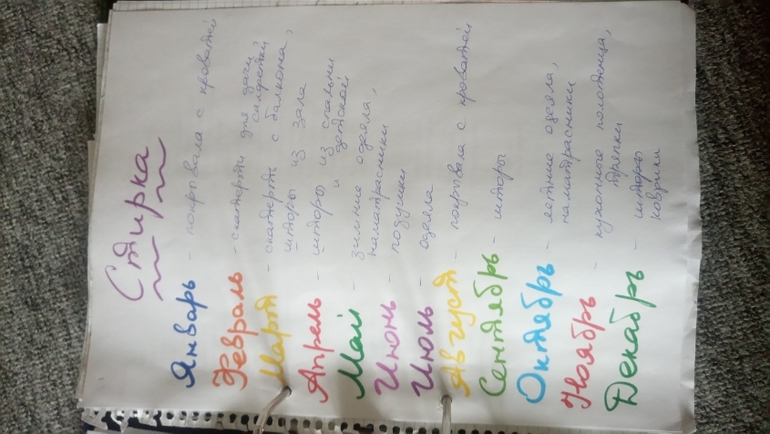 Стирка
Январь - покрывала с кроватей
Февраль - скатерти для дачи,
салфетки
Март - скатерть с балкона,
шторы из зала
Апрель - шторы из спальни
и детской
Май - зимние одеяла,
наматрасники
Июнь - подушки
Июль - одеяла
Август - покрывала с кроватей
Сентябрь - шторы
Октябрь - летние одеяла,
наматрасники
Ноябрь - кухонные полотенца,
тряпки
Декабрь - шторы
коврики